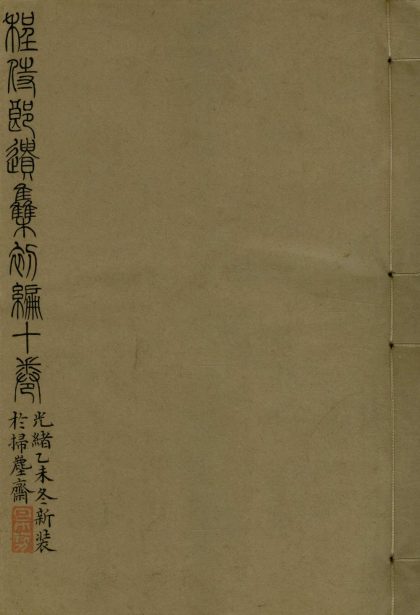 程侍郎遺集初編十卷
光緒乙未冬新裝
於掃塵齋